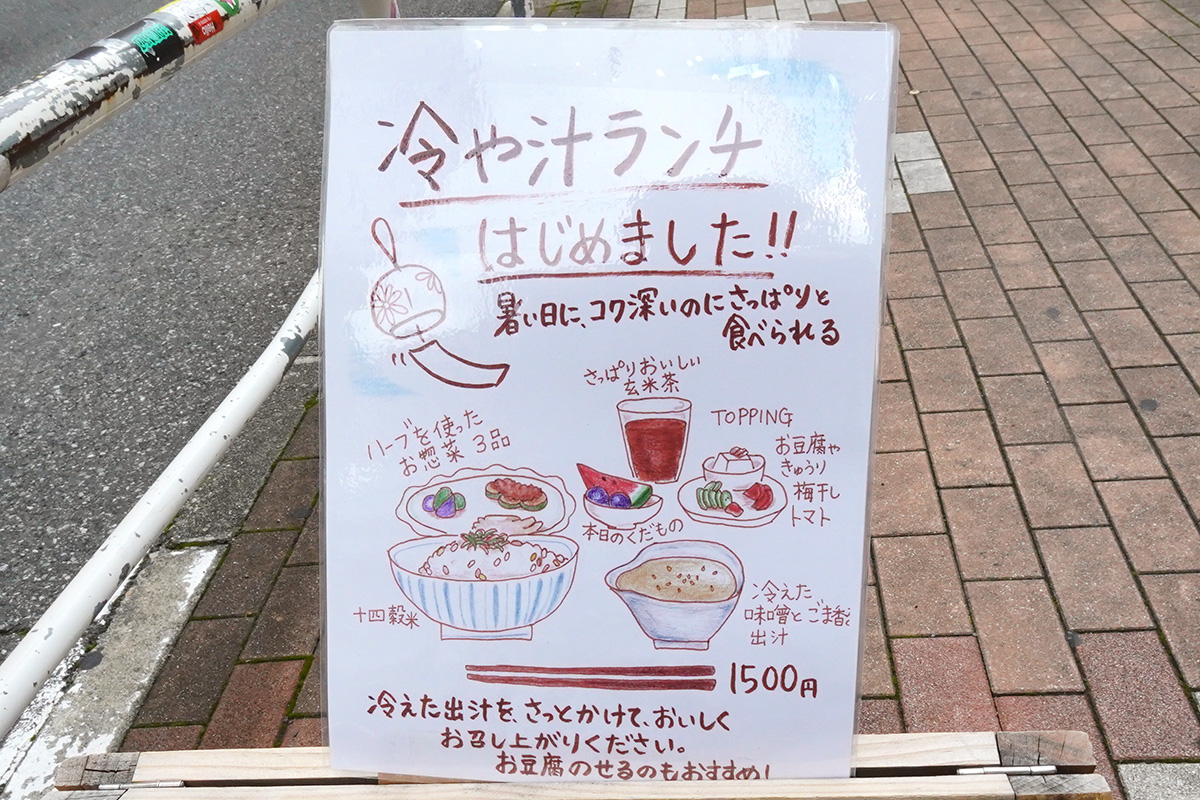 冷や汁ランチ
はじめました!!
暑い日に、コク深いのにさっぱりと
食べられる
さっぱりおいしい
玄米茶
TOPPING
お豆腐や
きゅうり
梅干し
トマト
ハーブを使った
お惣菜 3品
本日のくだもの
十四穀米
冷えた
味噌とごま香る
出汁
1500円
冷えた出汁を、さっとかけて、おいしく
お召し上がりください。
お豆腐のせるのもおすすめ!